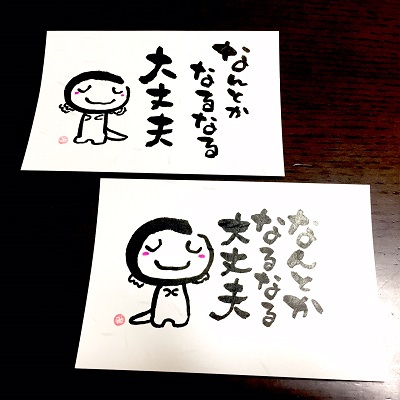 なんとか
なるなる
大丈夫
なんとか
なるなる
大丈夫